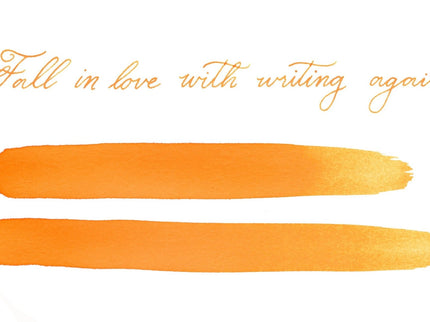 Fall in love with writing agai